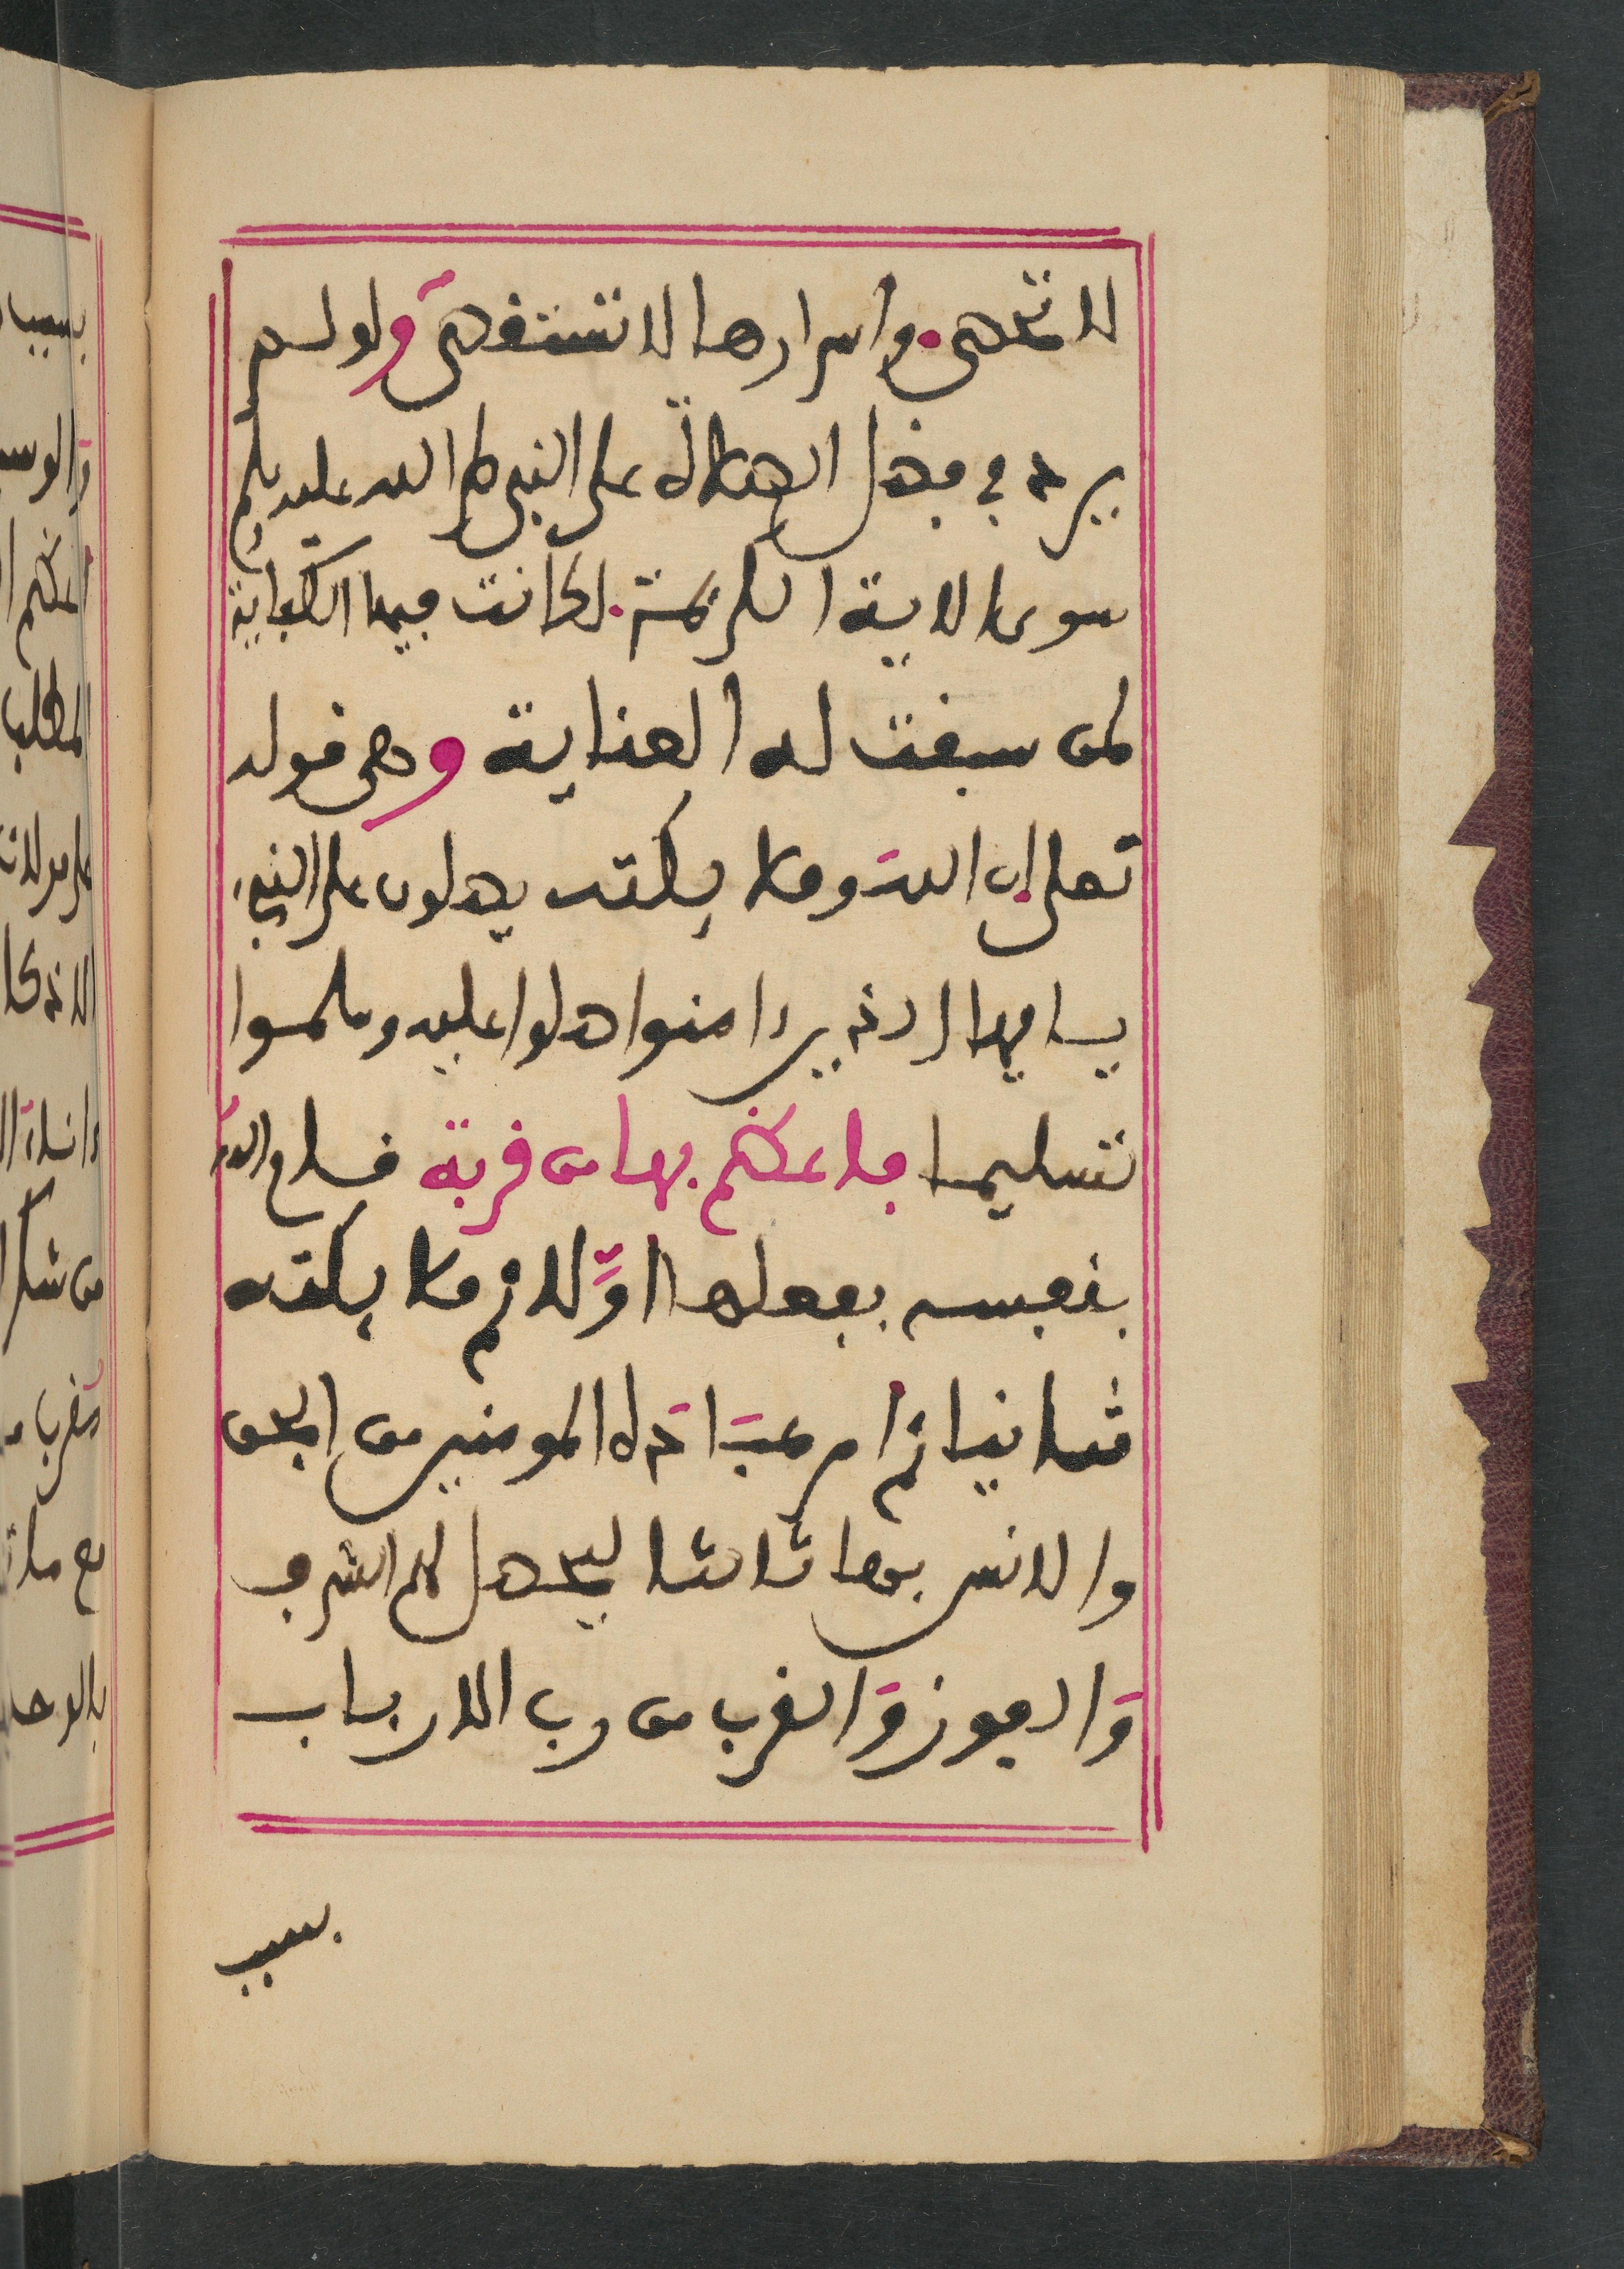 لا تحصى واسرارها لا تستقصى ولو لم
يرد في فضل الصلاة على النبي صلى الله عليه وسلم
سوى الاية الكريمة لكانت فيها الكفاية
لمن سبقت له العناية وهي قوله
تعلى ان الله وملائكته يصلون على النبيء
يا ايها الذين ءامنوا صلوا عليه وسلموا
تسليما فاعظم بها من قربة قام الله
بنفسه بفعلها اولا ثم ملائكته
ثانيا ثم امر عباده المومنين من الجن
والانس بها ثالثا ليحصل لهم الشرف
والفوز والقرب من رب الارباب
بسبب